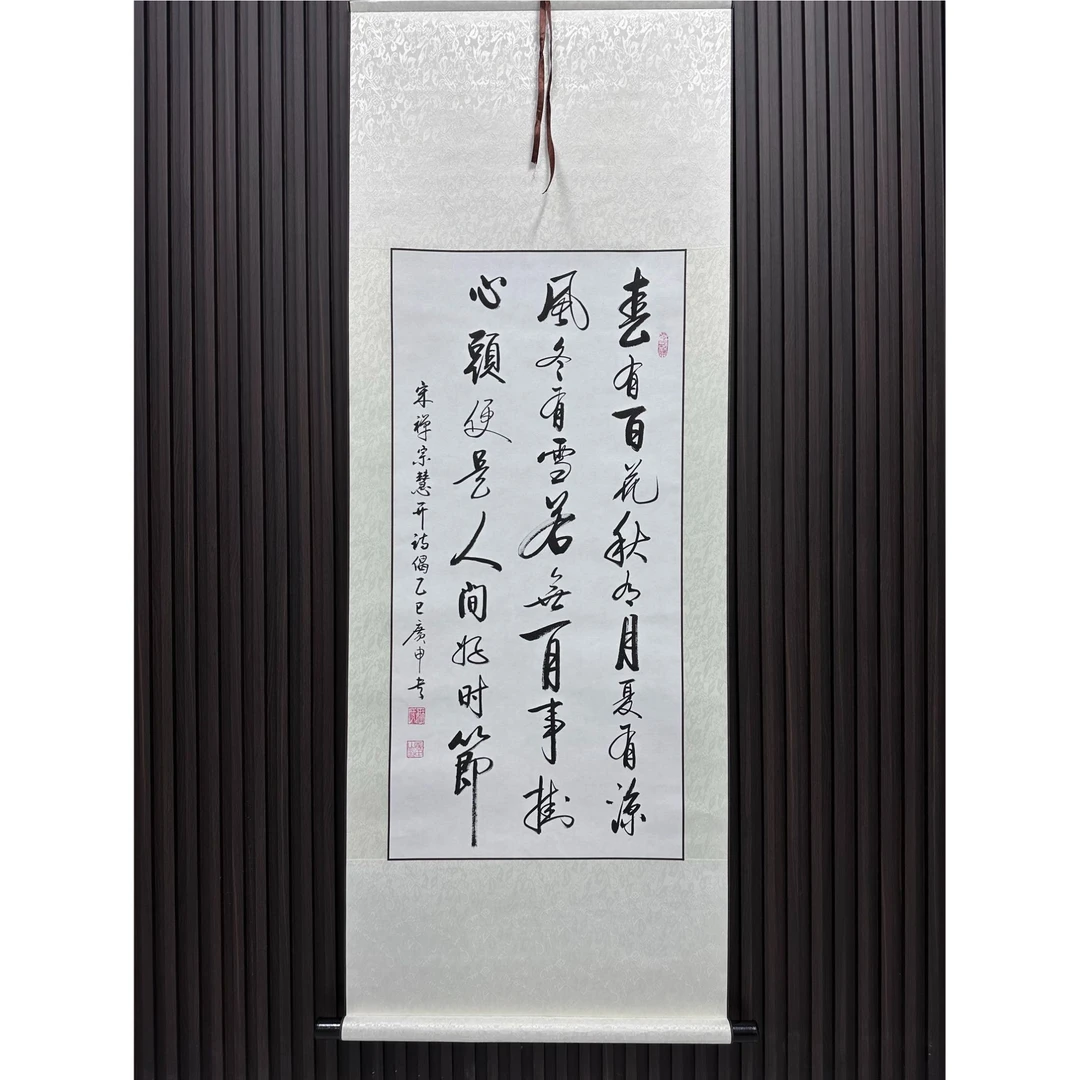 春有百花秋有月夏有涼
風冬有雪若無閒事掛
心頭便是人间好时節
宋禪宗慧开诗偈乙巳廣申书